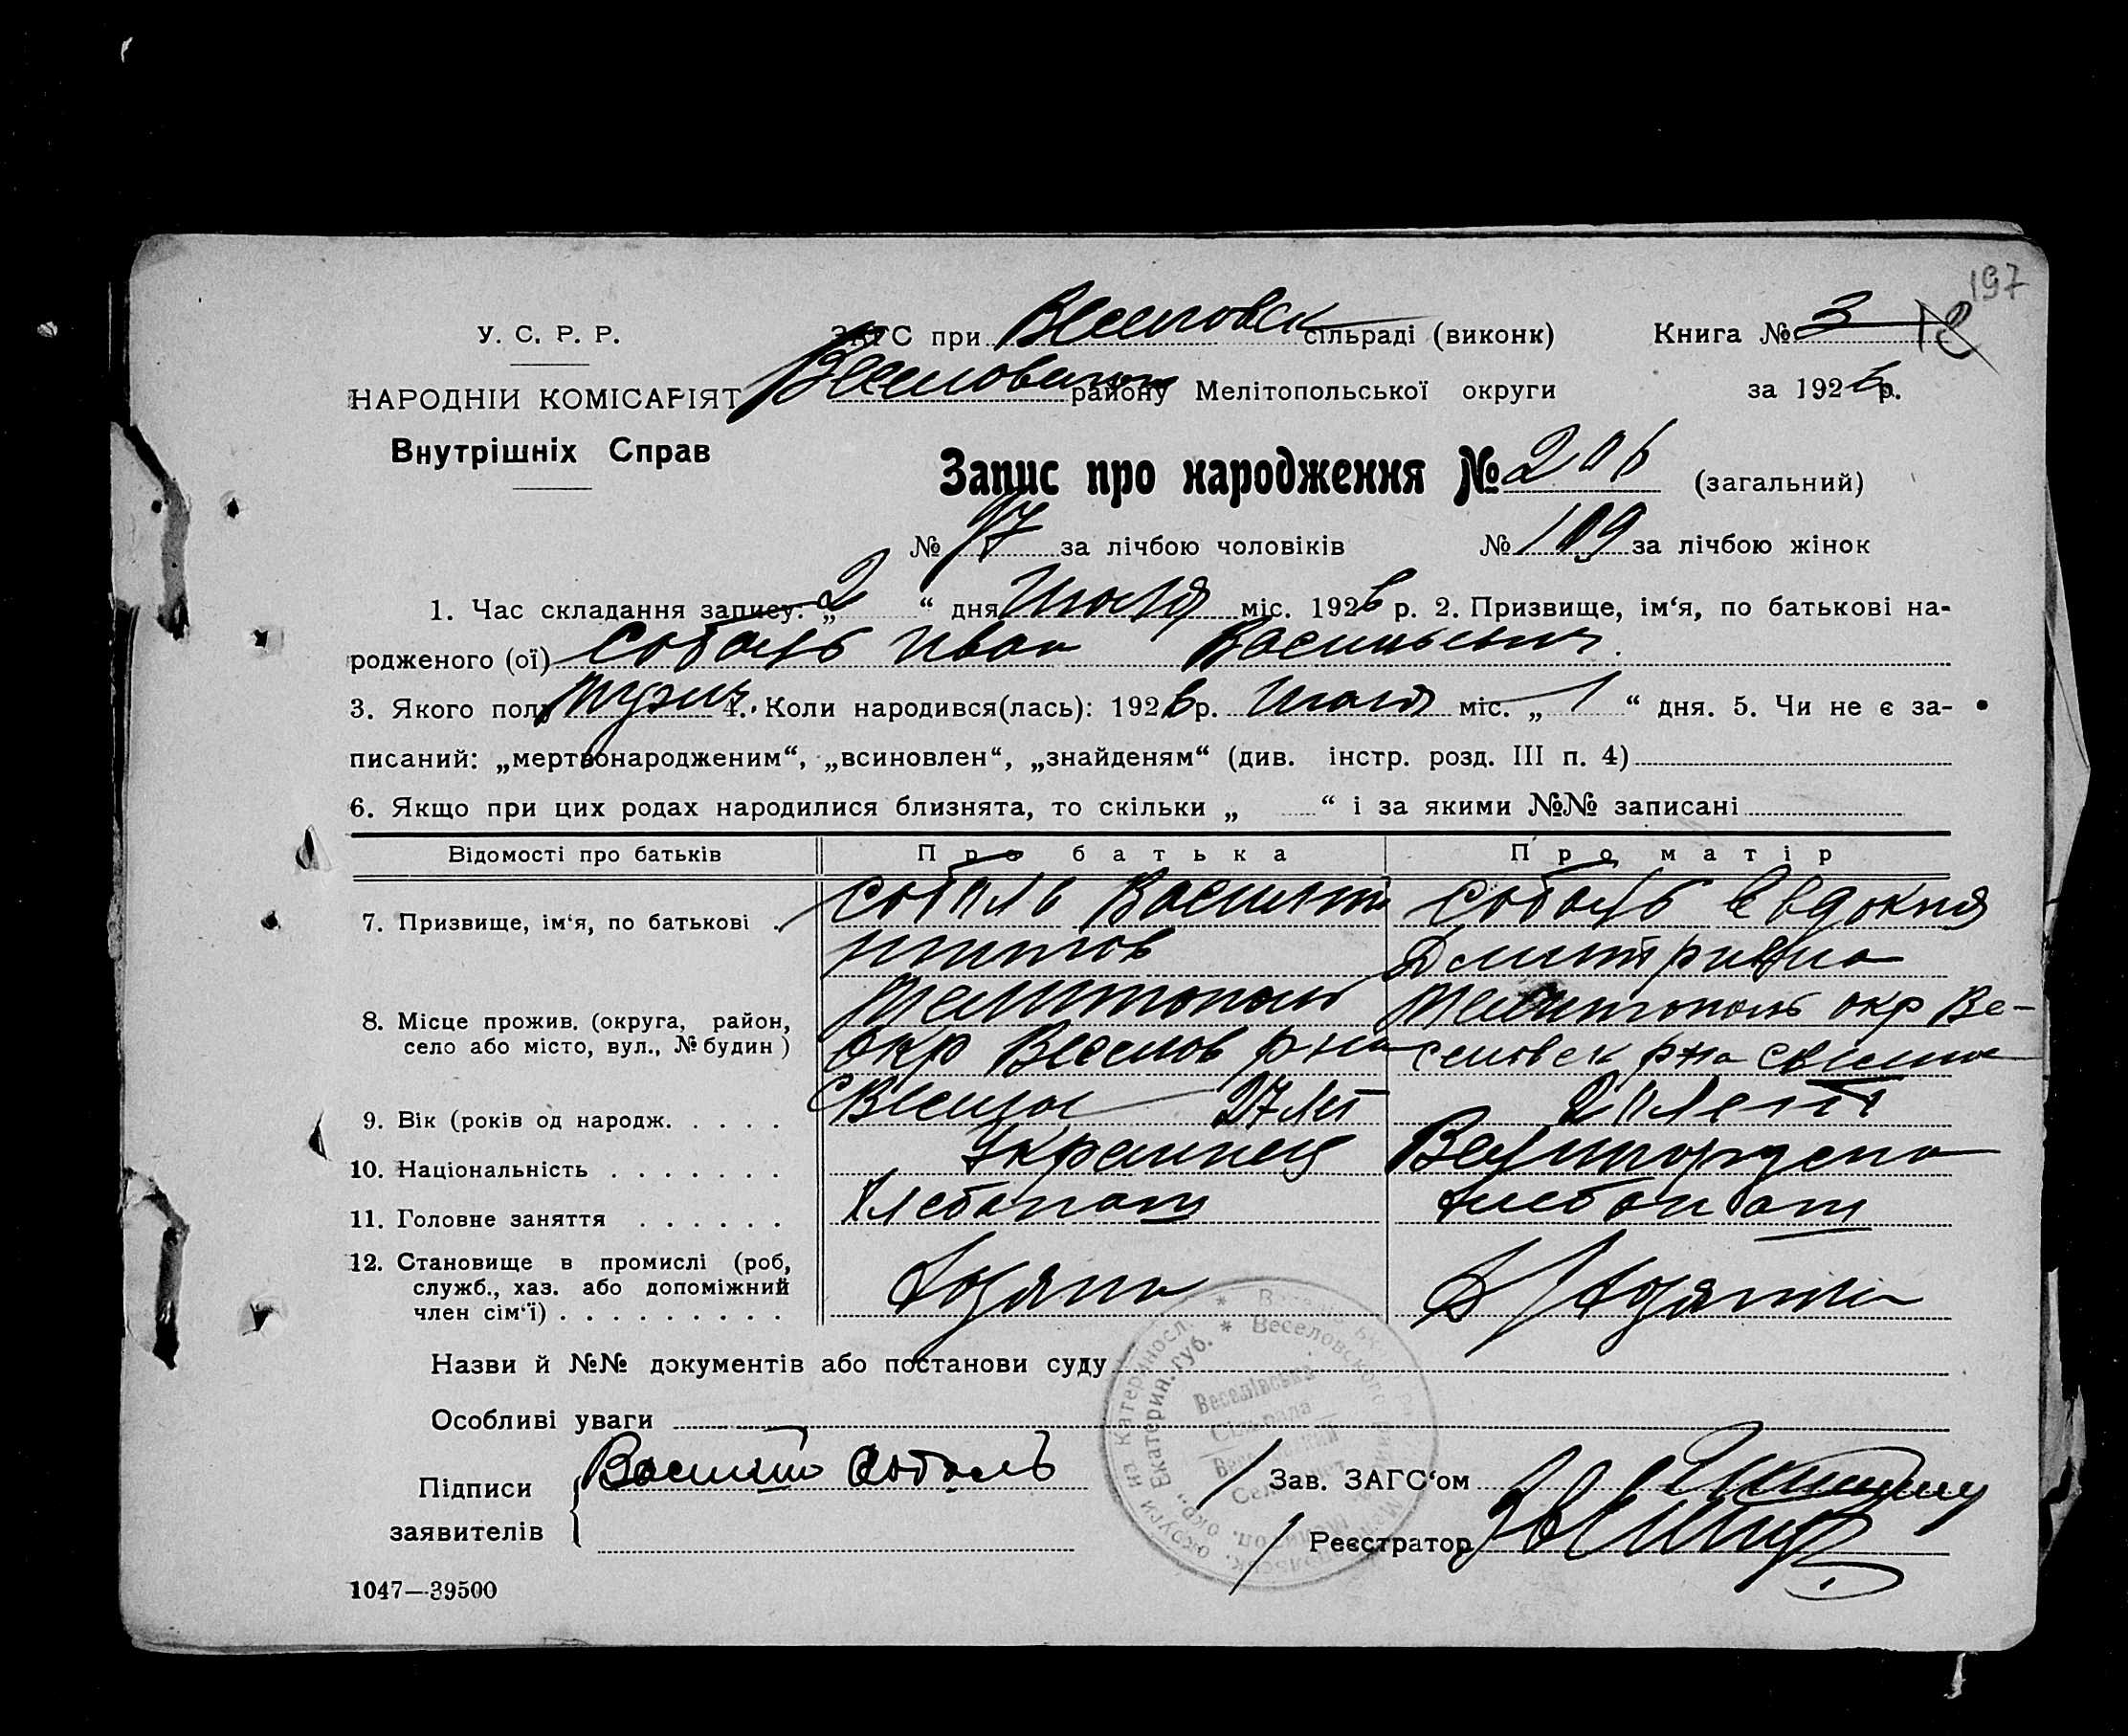 197
У. С. Р. Р.
ЗАГС при Веселовск сільраді (виконк) Книга № 3
НАРОДНІЙ КОМІСАРІЯТ
району Мелітопольської округи за 1926 р.
Внутрішніх Справ
Запис про народження № 206 (загальний)
№ 97 за лічбою чоловіків № 109 за лічбою жінок
1. Час складання запису: „ 2 “ дня Июля міс. 1926 р. 2. Призвище, ім‘я, по батькові на-
родженого (ої) Соболь Иван Васильевич.
3. Якого полу мужч. 4. Коли народився(лась): 1926 р. Июля міс. „ 1 “ дня. 5. Чи не є за-
писаний: „мертвонародженим“, „всиновлен“, „знайденям“ (див. інстр. розд. III п. 4)
6. Якщо при цих родах народилися близнята, то скільки „ “ і за якими №№ записані
Відомості про батьків Про батька Про матір
7. Призвище, ім‘я, по батькові . Соболь Василий Соболь Евдокия
Дмитривна
8. Місце прожив. (округа, район, Мелитополь Мелитополь окр Ве-
село або місто, вул., № будин) окр Веселов р на селовск р на
9. Вік (років од народж. . . . . 27 лет лет
10. Національність . . . . . . . Украинец
11. Головне заняття . . . . . . Хлебопаш Хлебопаш
12. Становище в промислі (роб,
служб., хаз. або допоміжний
член сім‘ї) . . . . . . . . . Хозяин
Назви й №№ документів або постанови суду
Особливі уваги
Веселівська
Сільрада
Підписи Василий Соболь Зав. ЗАГС‘ом
заявителів Реєстратор
1047—39500